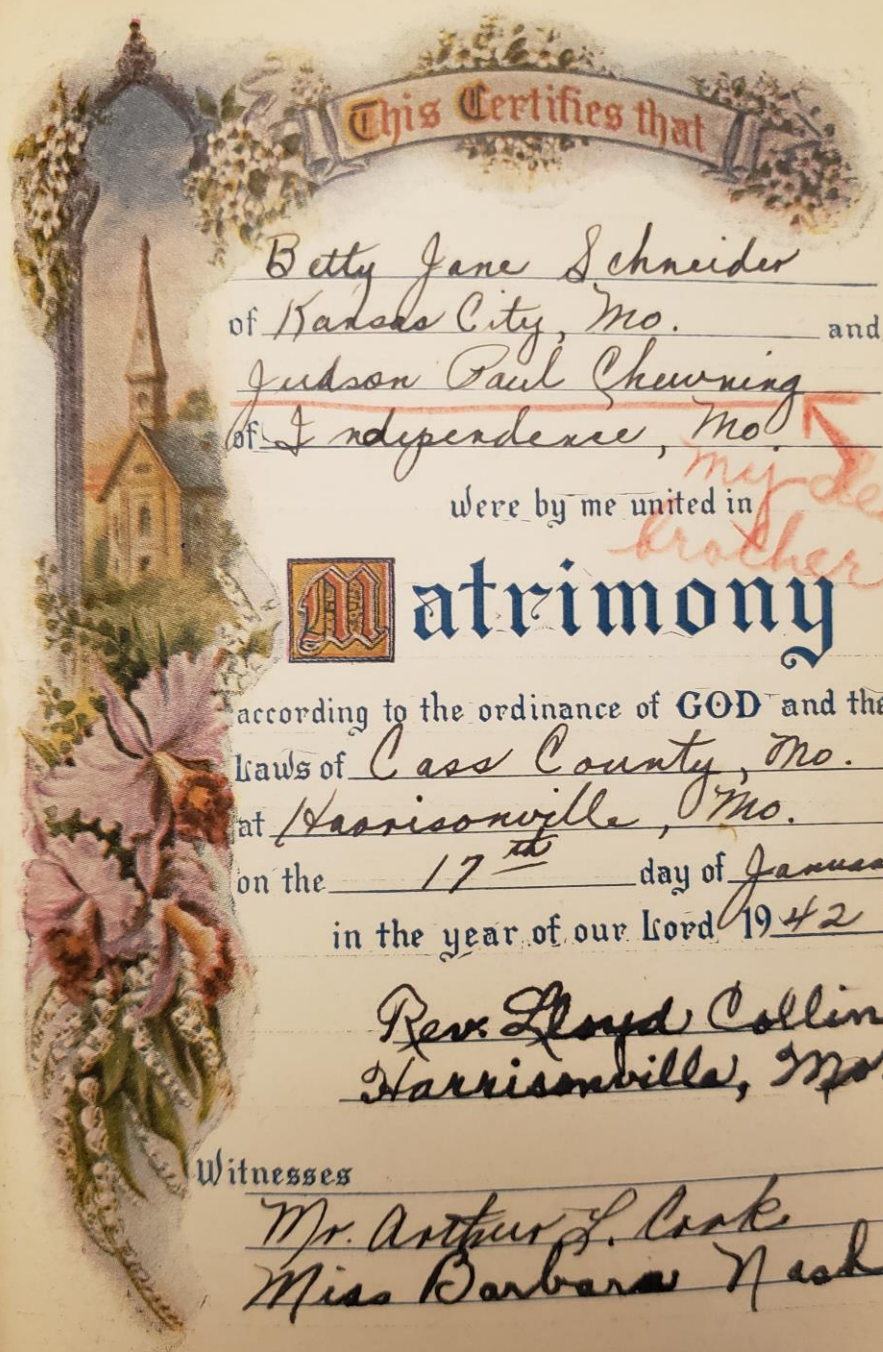 This Certifies that
Betty Jane Schneider
of Kansas City, Mo. and
Judson Paul Chewning
of Independence, Mo.
my
were by me united in
brother
Matrimony
according to the ordinance of GOD and the
Laws of Cass County, Mo.
at Harrisonville, Mo.
on the 17th day of Janua
in the year of our Lord 1942
Rev. Lloyd Collin
Harrisonville, Mo.
Witnesses
Mr. Arthur L. Cook
Miss Barbara Nash